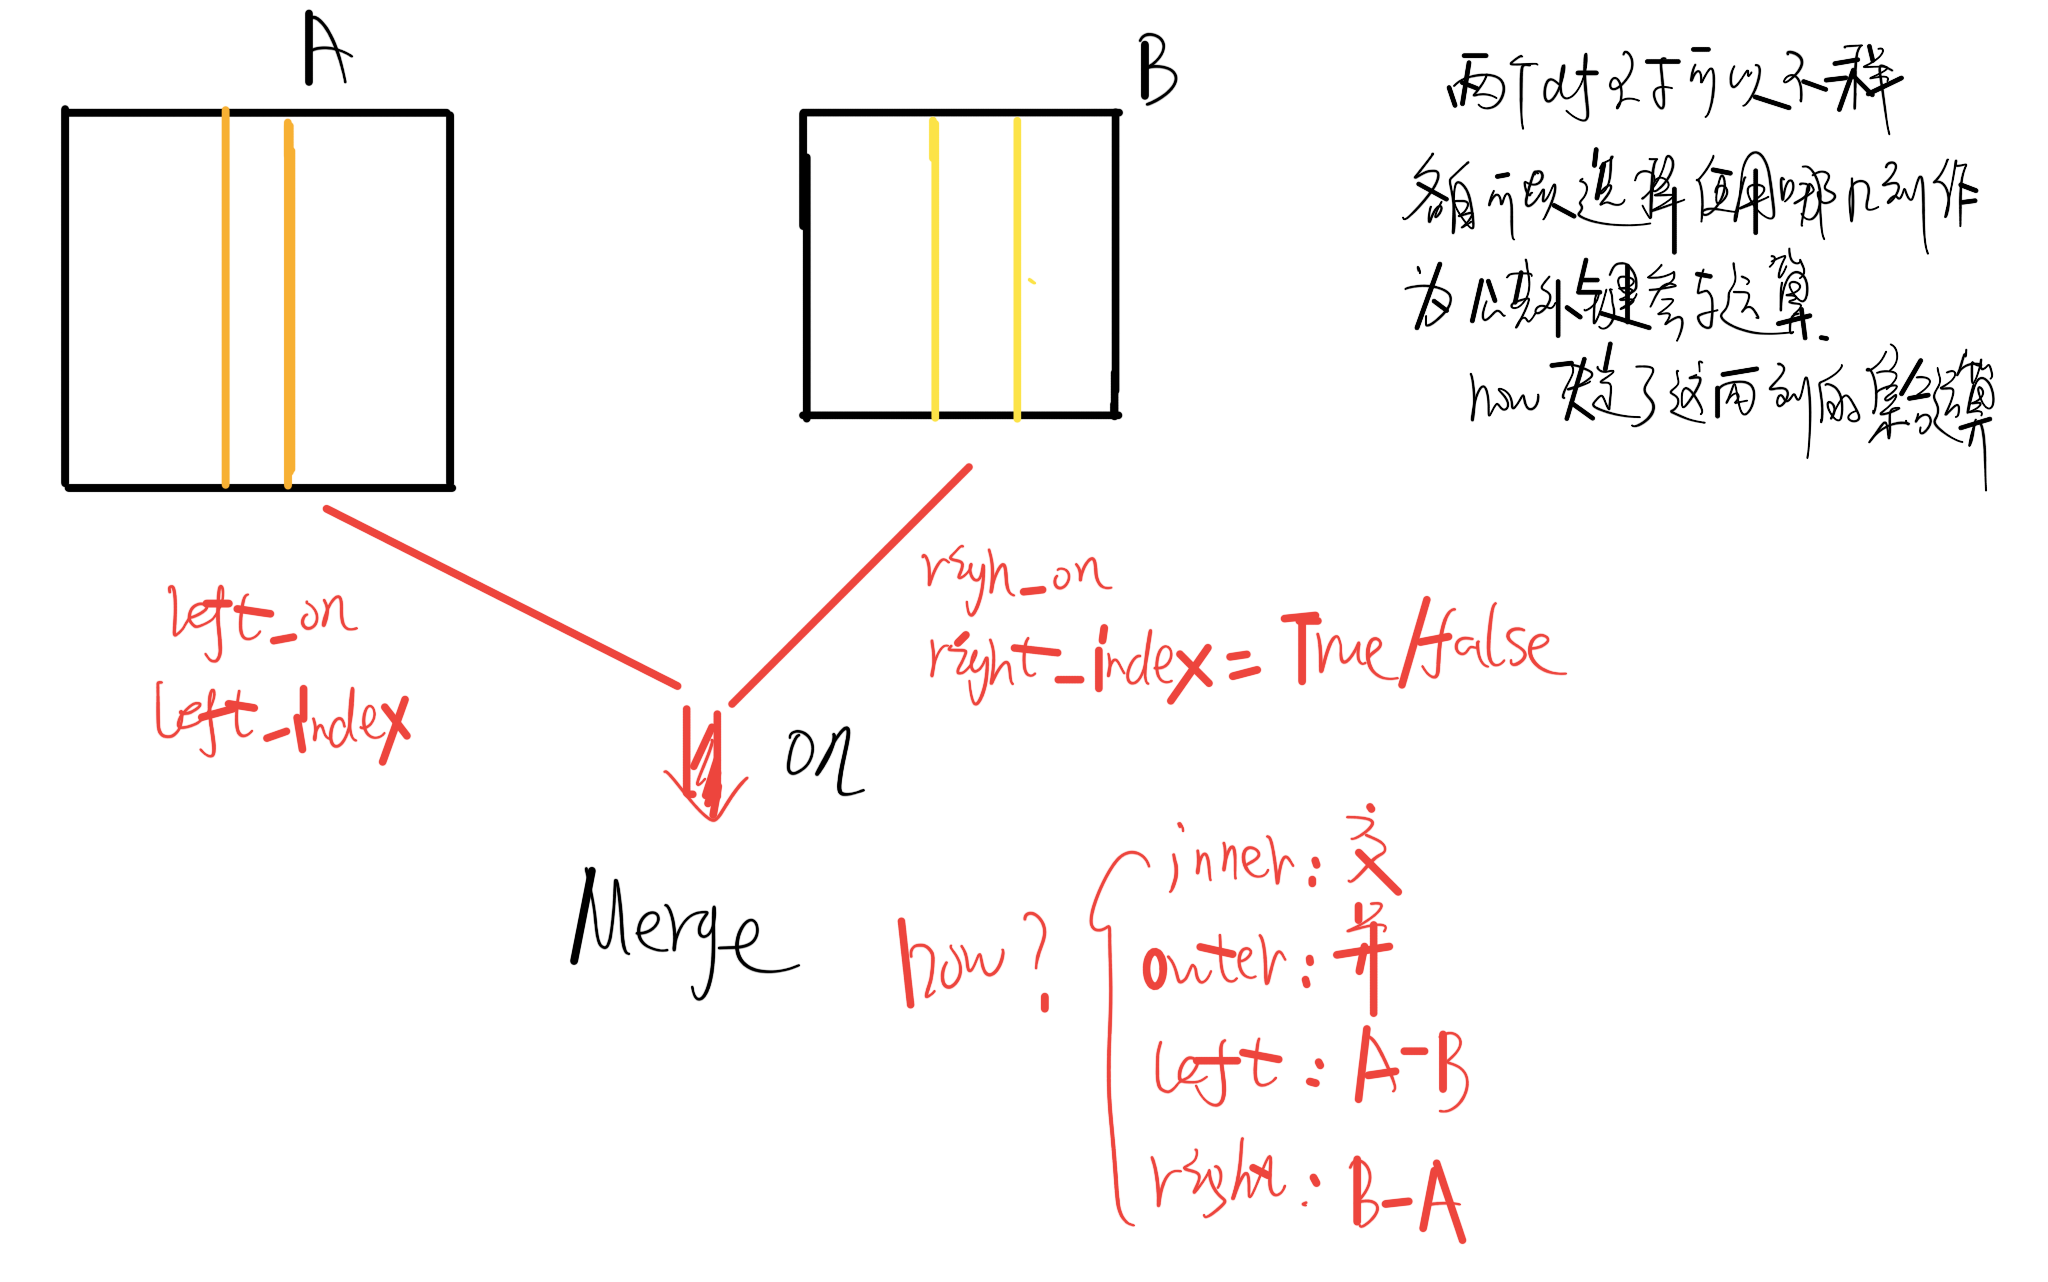 A
B
两个df尺寸可以不一样
各自可以选择使用哪几列作
为公共外键参与运算.
how 决定了这两列的集合运算
left_on
left_index
righ_on
right_index = True/false
on
Merge
how?
inner: 交
outer: 并
left: A-B
right: B-A